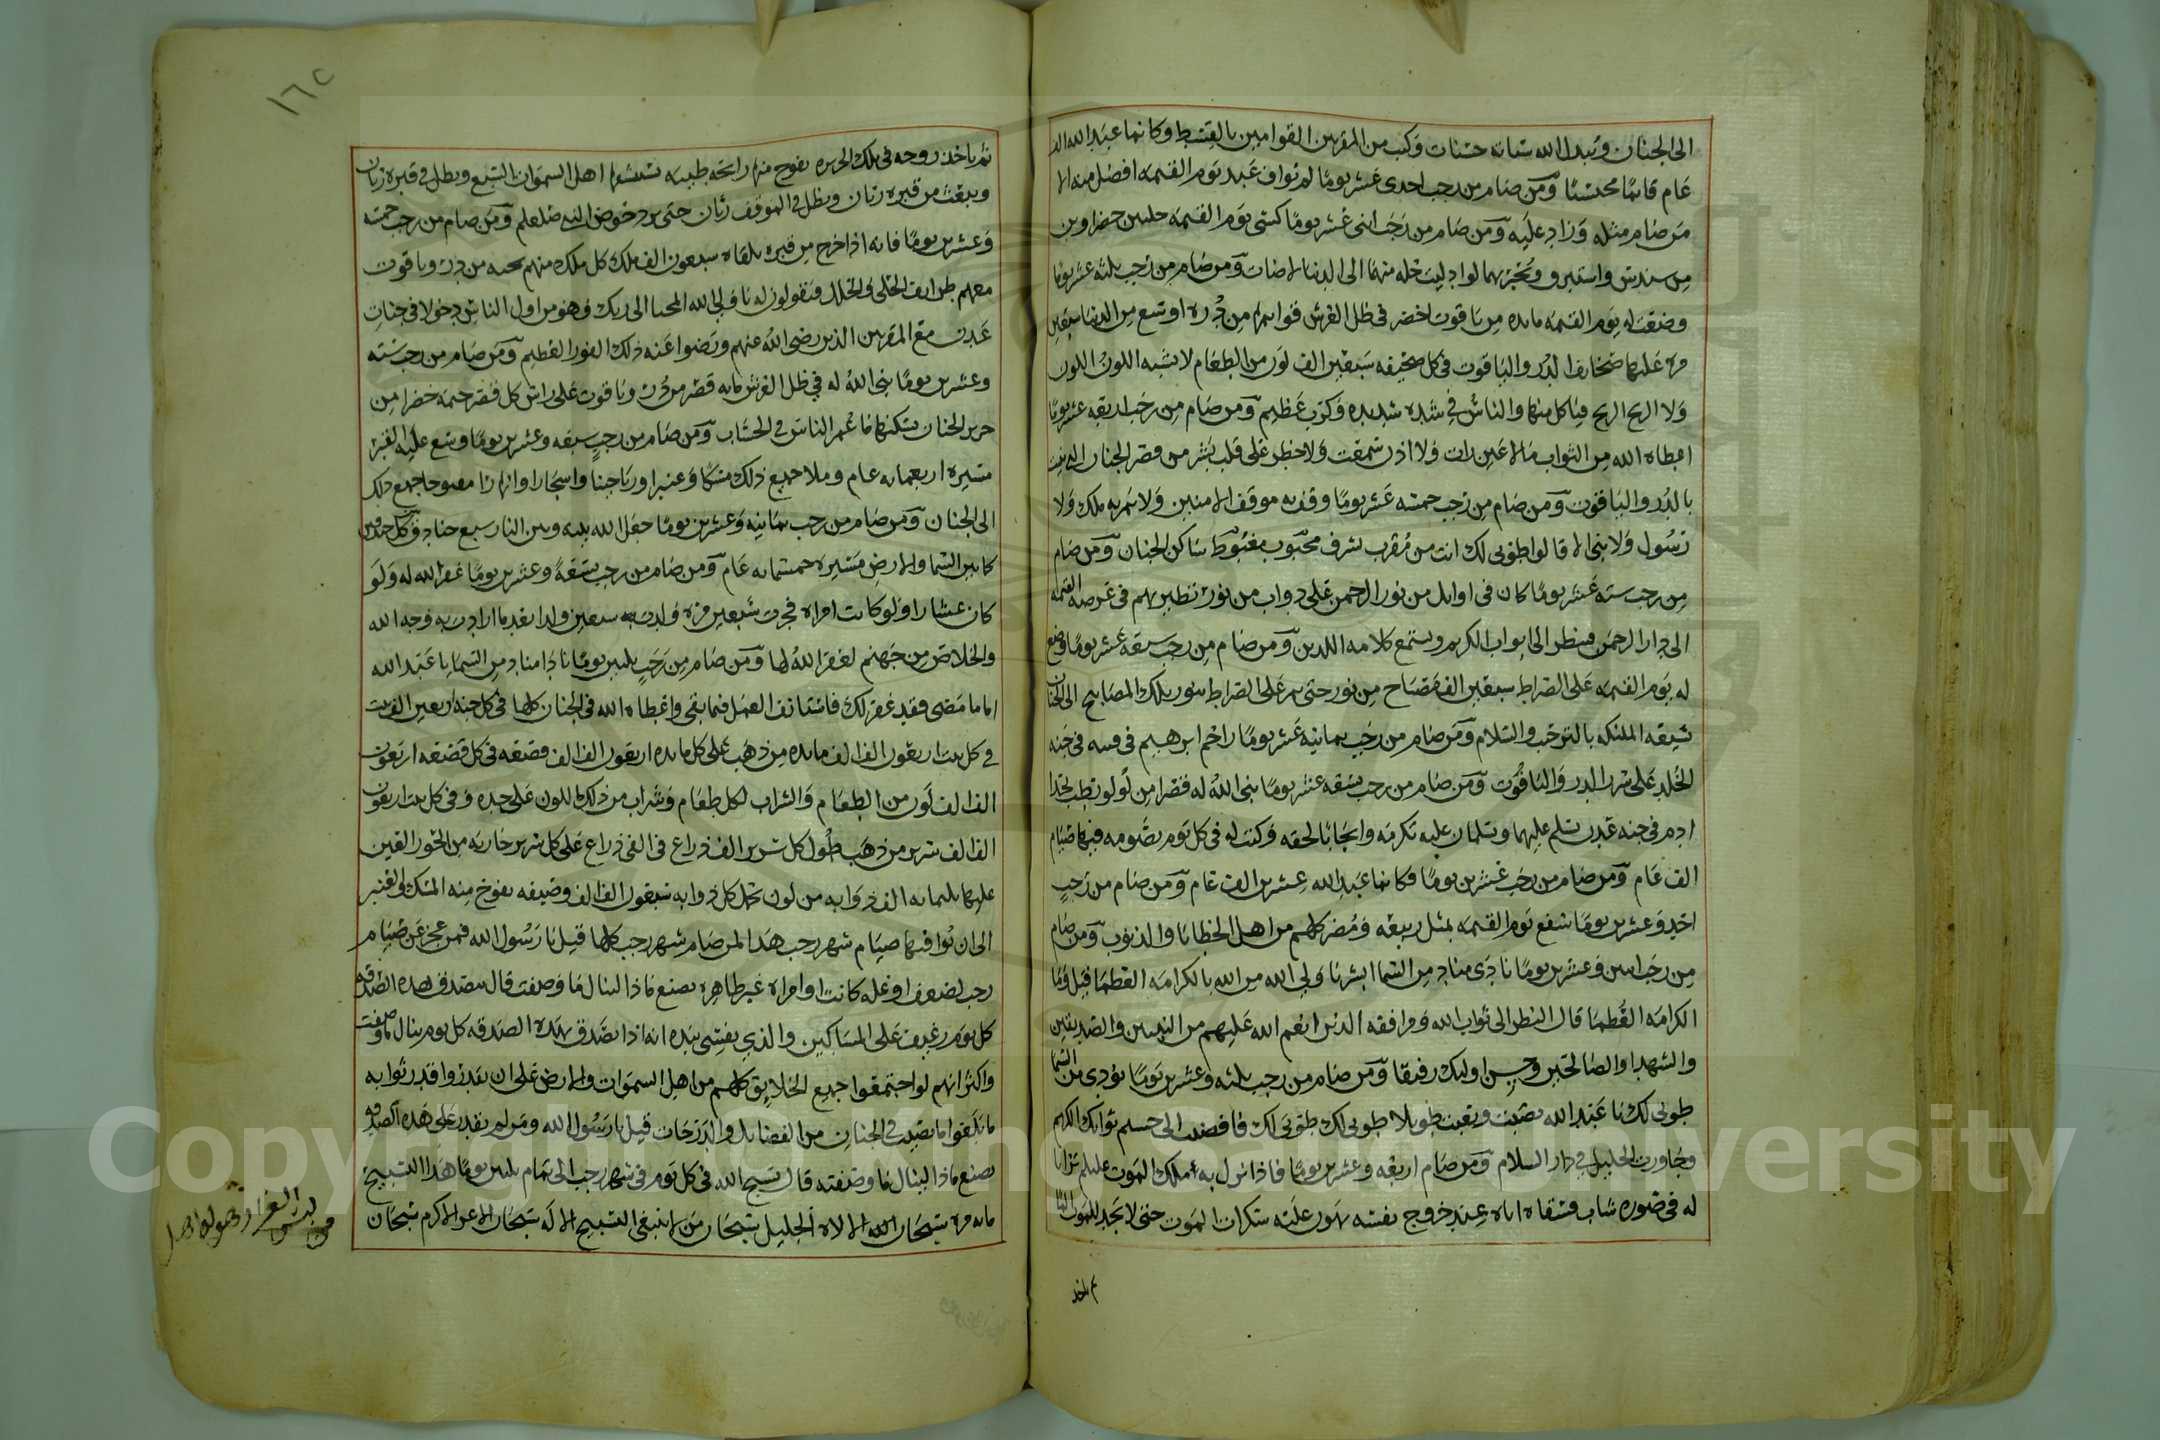 الى الجنان ويبدل الله سيئاته حسنات وكتب من المقربين القوامين بالقسط وكانما عبد الله الف
عام قائما محتسبا ومن صام من رجب احدى عشر يوما لم يواف عبد يوم القيمه افضل منه الا
من صام مثله وزاد عليه ومن صام من رجب اثنى عشر يوما كسى يوم القيمه حلتين خضراوين
من سندس واستبرق ويحبر بهما لو ادليت حله منهما الى الدنيا لاضات ومن صام من رجب ثلثه عشر يوما
وضعت له يوم القيمه مائده من ياقوت اخضر في ظل العرش قوائمها من دره اوسع من الدنيا سبعين
مره عليها صحائف الدر والياقوت في كل صحيفه سبعين الف لون من الطعام لا يشبه اللون اللون
ولا الريح الريح فياكل منها والناس في شده شديده وكرب عظيم ومن صام من رجب اربعه عشر يوما
اعطاه الله من الثواب ما لا عين رات ولا اذن سمعت ولا خطر على قلب بشر من قصر الجنان التي بنيت
بالدر والياقوت ومن صام من رجب خمسه عشر يوما وقف به موقف الامنين ولا يمر به ملك ولا
رسول ولا نبي الا قالوا طوبى لك انت من مقرب شرف محبوب مغبوط ساكن الجنان ومن صام
من رجب سته عشر يوما كان في اوائل من نور الرحمن على دواب من نور تطير بهم في عرصه القيمه
الى دار الرحمن فينظر الى ابواب الكريم ويستمع كلامه اللذيذ ومن صام من رجب سبعه عشر يوما وضع
له يوم القيمه على الصراط سبعين الف مصباح من نور حتى يمر على الصراط بنور تلك المصابيح الى الجنان
تشيعه الملئكه بالترحب والسلام ومن صام من رجب ثمانيه عشر يوما زاحم ابرهيم في قبته في جنه
الخلد على سرر الدر والياقوت ومن صام من رجب تسعه عشر يوما بنى الله له قصرا من لولو رطب بحذا
ادم في جنه عدن يسلم عليهما ويسلمان عليه تكرمه وايجابا لحقه وكتب له في كل يوم يصومه فيها صيام
الف عام ومن صام من رجب عشرين يوما فكانما عبد الله عشرين الف عام ومن صام من رجب
احد وعشرين يوما شفع يوم القيمه بمثل ربيعه ومضر كلهم من اهل الخطايا والذنوب ومن صام
من رجب اثنين وعشرين يوما نادى مناد من السما ابشر يا ولي الله من الله بالكرامه العظما قيل وما
الكرامه العظما قال النظر الى ثواب الله ومرافقه الذين انعم الله عليهم من النبيين والصديقين
والشهدا والصالحين وحسن اوليك رفيقا ومن صام من رجب ثلثه وعشرين يوما نودي من السما
طوبى لك يا عبد الله نصبت وتعبت طويلا طوبى لك طوبى لك فافضيت الى جسيم ثوابك الكريم
وجاورت الجليل في دار السلام ومن صام اربعه وعشرين يوما فاذا نزل به ملك الموت عليلم ترايا
له في صوره شاب فسقاه اناه عند خروج نفسه يهون عليه سكرات الموت حتى لا يجد للموت الما
ثم ياخذ
١٦٥
ثم ياخذ روحه في تلك الحريره تفوح منها رايحه طيبه يستنشقها اهل السموات السبع ويظل في قبره ريان
ويبعث من قبره ريان ويظل في الموقف ريان حتى يرد حوض النبي صلعم ومن صام من رجب خمسه
وعشرين يوما فانه اذا خرج من قبره تلقاه سبعون الف ملك كل ملك منهم بيده من در وياقوت
معهم طرائف الحلي والحلل فيقولون له يا ولي الله المحيا الى ربك وهو من اول الناس دخولا في جنات
عدن مع المقربين الذين رضى الله عنهم ورضوا عنه ذلك الفوز العظيم ومن صام من رجب سته
وعشرين يوما بنى الله له في ظل العرش مايه قصر من در وياقوت على راس كل قصر خيمه خضرا من
حرير الجنان يسكنها ناعما والناس في الحساب ومن صام من رجب سبعه وعشرين يوما وسع عليه القبر
مسيره اربعمايه عام وملا جميع ذلك مسكا وعنبرا ورياحينا واشجارا وانهارا مفتوحا جميع ذلك
الى الجنان ومن صام من رجب ثمانيه وعشرين يوما جعل الله بينه وبين النار سبع خنادق كل خندق
كما بين السما والارض مسيره خمسمايه عام ومن صام من رجب تسعه وعشرين يوما غفر الله له ولو
كان عشارا ولو كانت امراه فجرت سبعين مره ولدت به سبعين ولدا بعد ما ارادت به وجه الله
والخلاص من جهنم لغفر الله لها ومن صام من رجب ثلثين يوما نادا مناد من السما يا عبد الله
اما ما مضى فقد غفر لك فاستانف العمل فيما بقي واعطاه الله في الجنان كلها في كل جنه اربعين الف بيت
في كل بيت اربعون الف الف مائده من ذهب على كل مائده اربعون الف الف قصعه في كل قصعه اربعون
الف الف لون من الطعام والشراب لكل طعام وشراب من ذلك لون على حده وفي كل بيت اربعون
الف الف سرير من ذهب طول كل سرير الف ذراع في الفي ذراع على كل سرير جاريه من الحور العين
عليها ثلثمايه الف ذوابه من نور تحمل كل ذوابه سبعون الف الف وصيفه يفوح منه المسك والعنبر
الى ان يوافيها صيام شهر رجب هذا لمن صام شهر رجب كلها قيل يا رسول الله فمن عجز عن صيام
رجب لضعف او عله كانت او امراه غير طاهره يصنع ماذا لينال ما وصفت قال يتصدق هذه الصدقه
كل يوم رغيف على المساكين والذي نفسي بيده انه اذا تصدق بهذه الصدقه كل يوم ينال ما وصفت
واكثر انهم لو اجتمعوا جميع الخلايق كلهم من اهل السموات والارض على ان يقدروا قدر ثوابه
ما بلغوا ما يصيب في الجنان من الفضائل والدرجات قيل يا رسول الله ومن لم يقدر على هذه الصدقه
يصنع ماذا لينال ما وصفته قال يسبح الله في كل يوم في شهر رجب الى تمام ثلثين يوما هذا التسبيح
مايه مره سبحان الله الاله الجليل سبحان من لا ينبغي التسبيح الا له سبحان الاعز الاكرم سبحان
Copyright © King Saud University